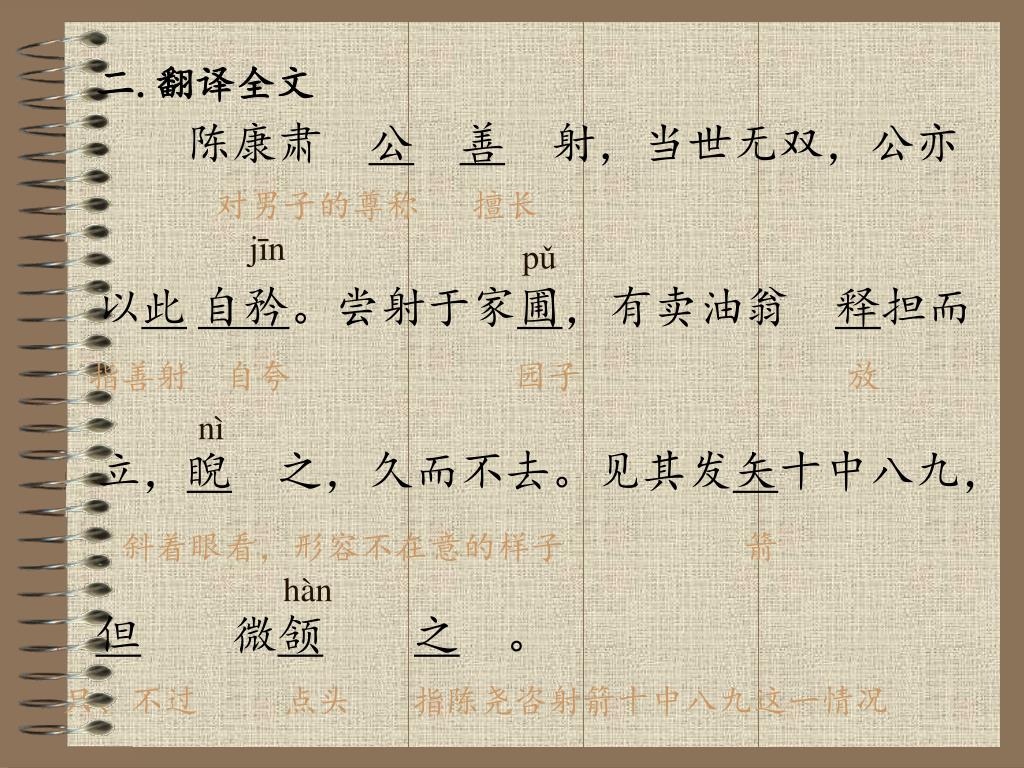 二.翻译全文
陈康肃 公 善 射，当世无双，公亦
对男子的尊称 擅长
jīn pǔ
以此自矜。尝射于家圃，有卖油翁 释担而
指善射 自夸 园子 放
nì
立，睨 之，久而不去。见其发矢十中八九，
斜着眼看，形容不在意的样子 箭
hàn
但 微颔 之 。
只、不过 点头 指陈尧咨射箭十中八九这一情况